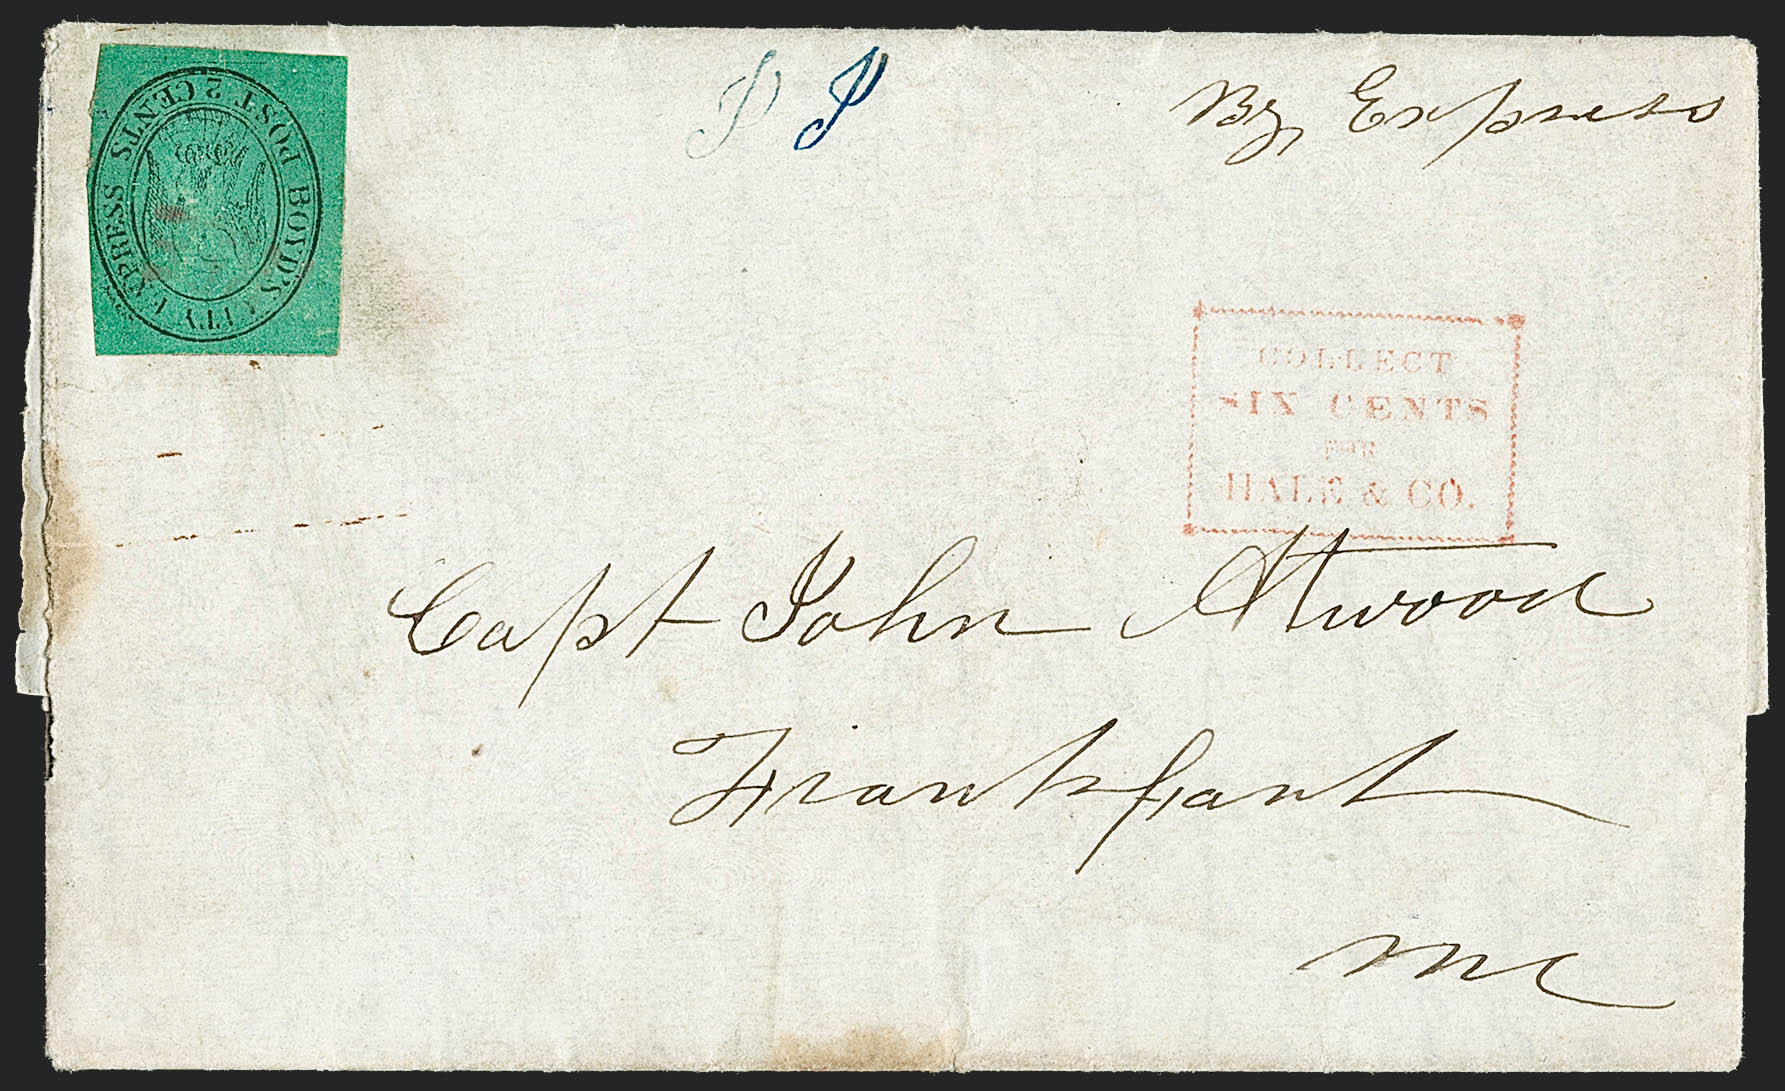 BOYD'S CITY EXPRESS POST. 2 CENTS
P P
By Express
COLLECT
SIX CENTS
FOR
HALE & CO.
Capt John Atwood
Frankfort
Me